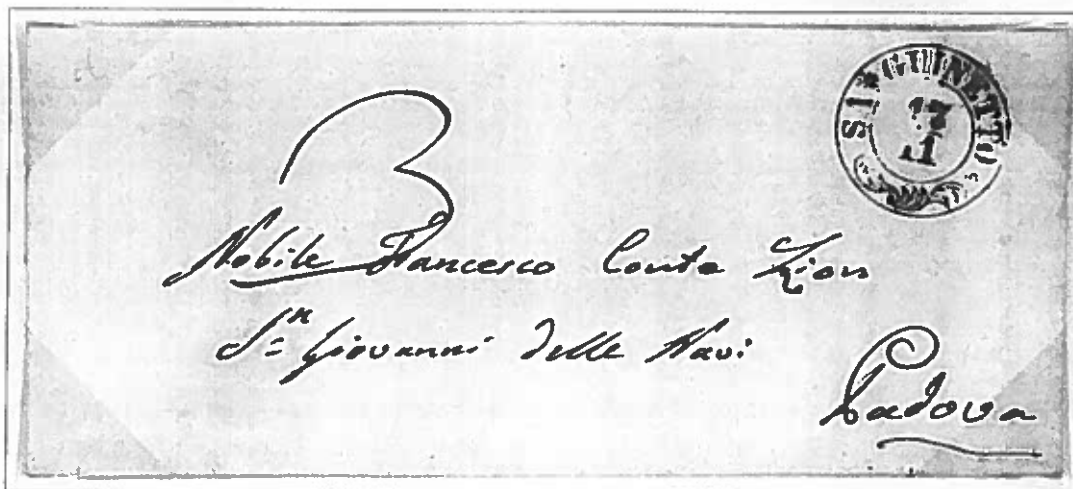 SANGUINETTO
17
11
3
Nobile Francesco Conte Zion
S.n Giovanni delle Navi
Padova